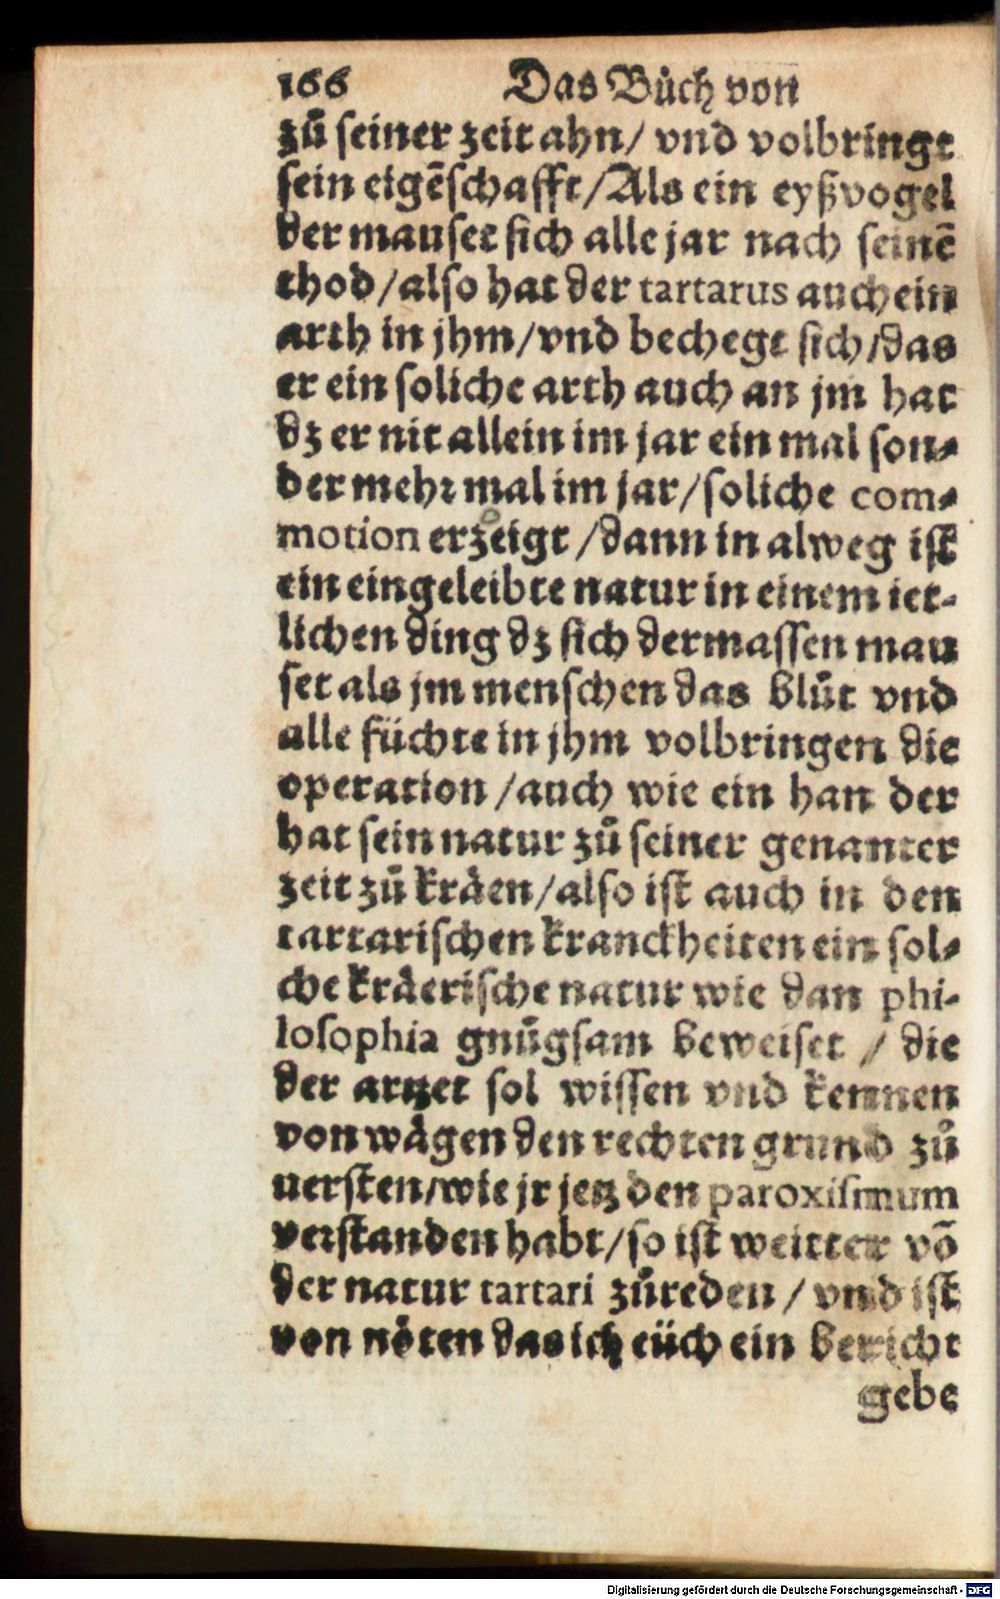 166 Das Bůch von
zů seiner zeit ahn/ vnd volbringt
sein eigēschafft/Als ein eyßvogel
der mauset sich alle jar nach seinē
thod/also hat der tartarus auch ein
arth in jhm/vnd bechegt sich/das
er ein soliche arth auch an jm hat
dz er nit allein im jar ein mal son⸗
der mehꝛ mal im jar/soliche com⸗
motion erzeigt/dann in alweg ist
ein eingeleibte natur in einem iet⸗
lichen ding dz sich dermassen mau
set als jm menschen das blůt vnd
alle füchte in jhm volbringen die
operation/auch wie ein han der
hat sein natur zů seiner genanter
zeit zů kräen/also ist auch in den
tartarischen kranckheiten ein sol⸗
che kräerische natur wie dan phi-
losophia gnůgsam beweiset / die
der artzet sol wissen vnd kennen
von wägen den rechten grund zů
uersten/wie jr jetz den paroxismum
verstanden habt/so ist weitter vō
der natur tartari zůreden / vnd ist
von nöten das ich eüch ein bericht
gebe
Digitalisierung gefördert durch die Deutsche Forschungsgemeinschaft - DFG